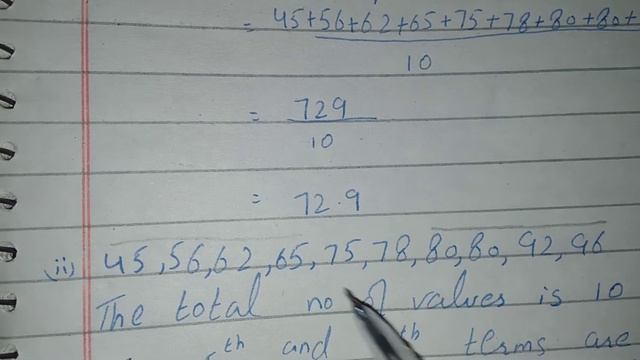 = 45+56+62+65+75+78+80+80+
10
= 729
10
= 72.9
(ii) 45,56,62,65,75,78,80,80,92,96
The total no of values is 10
th and th terms are